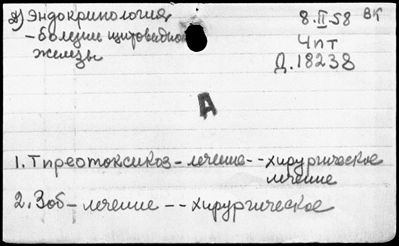 Эндокринология
8.II.58 ВК
- болезни щитовидной
железы
Чпт
Д.18238
А
1. Тиреотоксикоз - лечение -- хирургическое
лечение
2. Зоб - лечение -- хирургическое